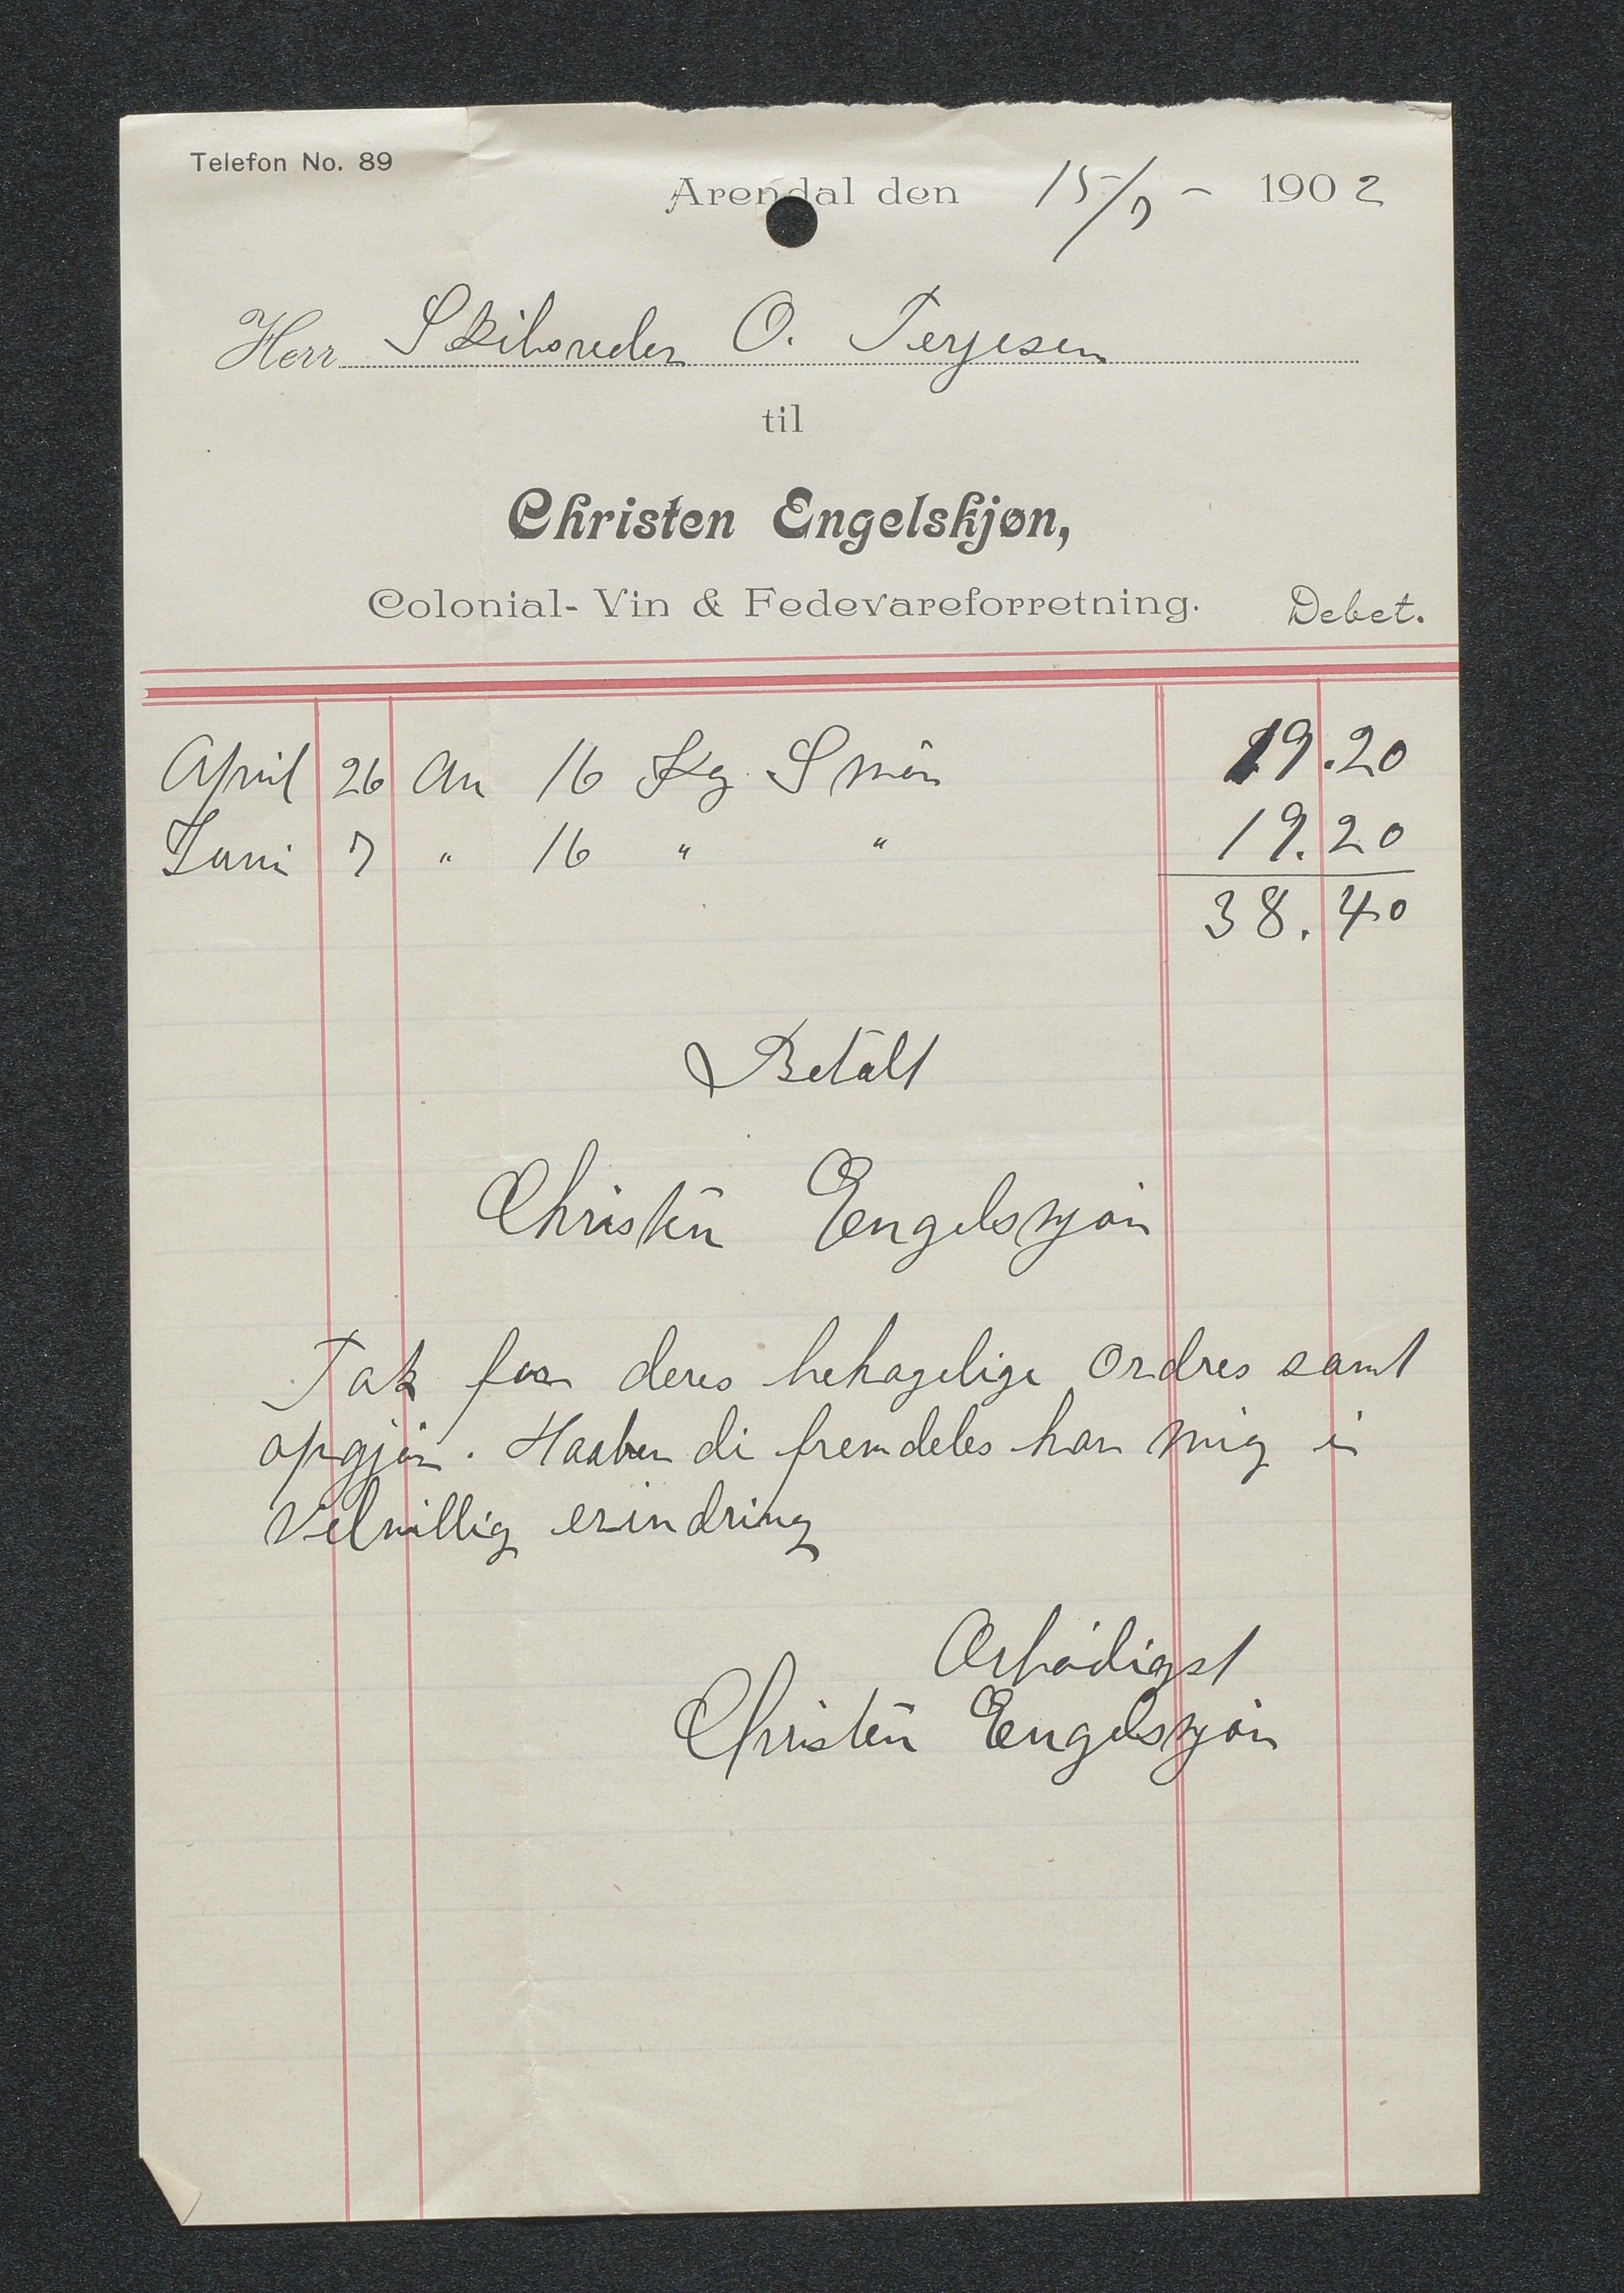 Telefon No. 89
Arendal den 15/7 - 1902
Herr Skibsreder O. Terjesen
til
Christen Engelskjøn,
Colonial- Vin & Fedevareforretning. Debet.
April 26 An 16 Kg Smör 19.20
Juni 7 " 16 " " 19.20
38.40
Betalt
Christen Engelskjön
Tak for deres behagelige Ordres samt
opgjör. Haaber di fremdeles har mig i
Velvillig erindring
Ærbödigst
Christen Engelskjön